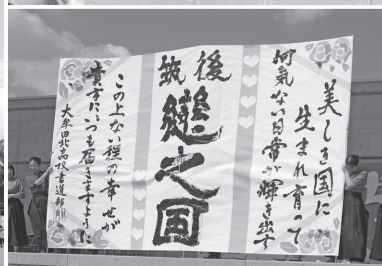 美しき国に
生まれ育って
何気ない日常が輝き出す
筑後
之国
この上ない程の幸せが
貴方にいつも届きますように
大牟田北高校書道部